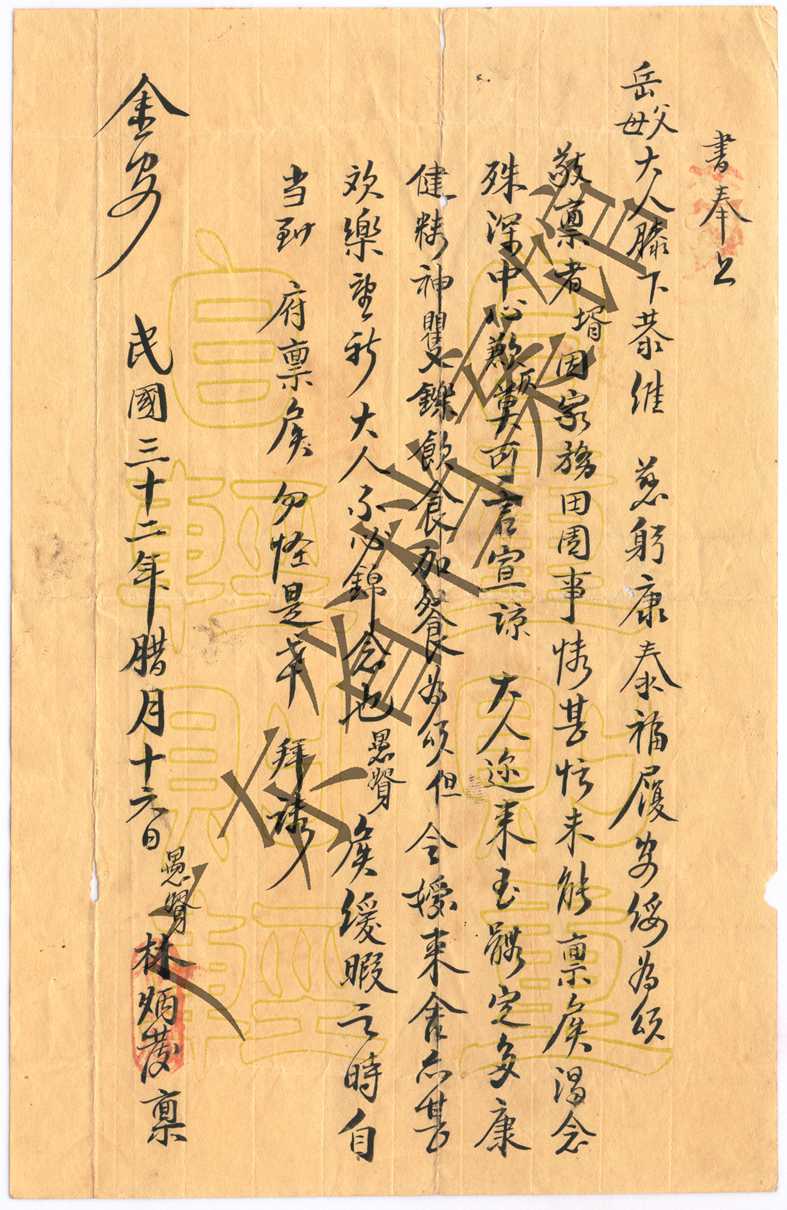 書奉上
岳父母大人膝下恭維 慈躬康泰福履安綏為頌
敬禀者婿因家務田園事情甚忙未能禀候渴念
殊深中心歉仄莫可言宣諒 大人迩来玉體定多康
健精神矍鑠飲食加餐為頌但 令嫒来舍亦甚
欢樂望祈大人不必錦念也愚婿候緩暇之時自
当到 府禀候勿怪是幸 拜禱
金安
民國三十二年腊月十六日 愚婿林炳茂禀